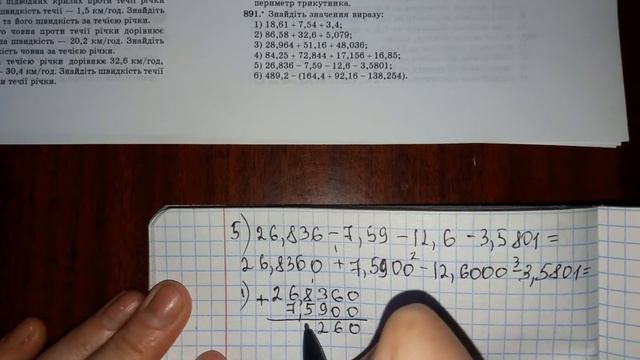 підводних крилах проти течії річки
швидкість течії — 1,5 км/год. Знайдіть
та його швидкість за течією річки.
го човна проти течії річки дорівнює
швидкість — 20,2 км/год. Знайдіть
кість човна за течією річки.
течією річки дорівнює 32,6 км/год,
— 30,4 км/год. Знайдіть швидкість течії
и течії річки.
периметр трикутника.
891.* Знайдіть значення виразу:
1) 18,61 + 7,54 + 3,4;
2) 86,58 + 32,6 + 5,079;
3) 28,964 + 51,16 + 48,036;
4) 84,25 + 72,844 + 17,156 + 16,85;
5) 26,836 – 7,59 – 12,6 – 3,5801;
6) 489,2 – (164,4 + 92,16 – 138,254).
5) 26,836 – 7,59 – 12,6 – 3,5801 =
1 2 3
26,8360 + 7,5900 – 12,6000 – 3,5801 =
1) + 26,8360
7,5900
260